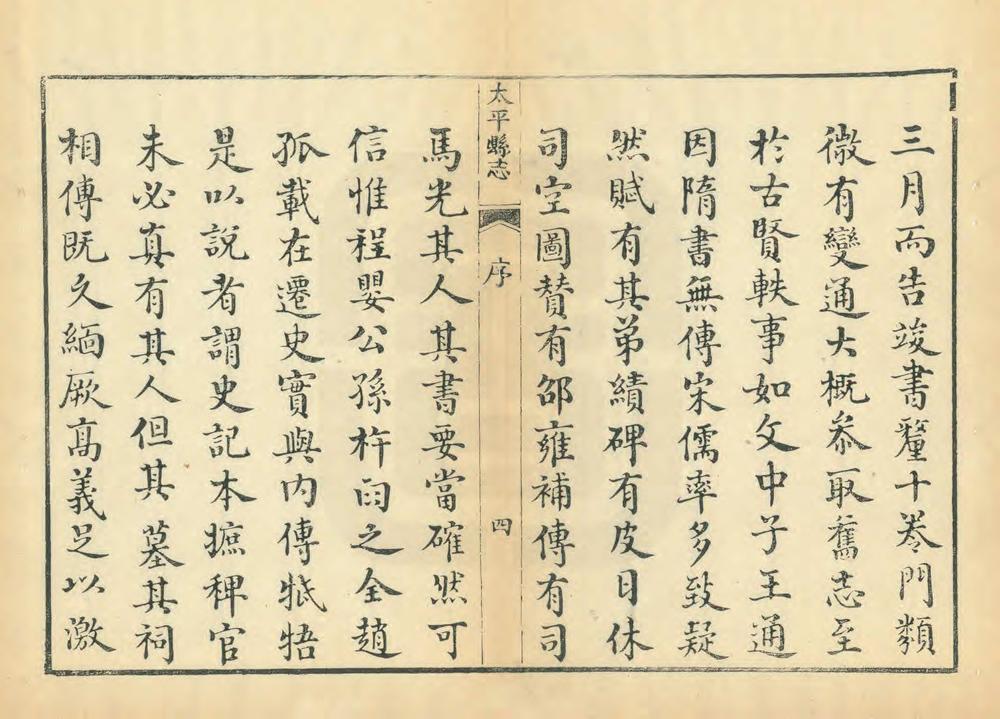 三月而告竣書釐十卷門類
微有變通大概叅取舊志至
於古賢軼事如文中子王通
因隋書無傳宋儒率多致疑
然賦有其弟績碑有皮日休
司空圖贊有邵雍補傳有司
太平縣志
序
四
馬光其人其書要當確然可
信惟程嬰公孫杵臼之全趙
孤載在遷史實與內傳牴牾
是以說者謂史記本摭稗官
未必真有其人但其墓其祠
相傳既久緬厥高義足以激